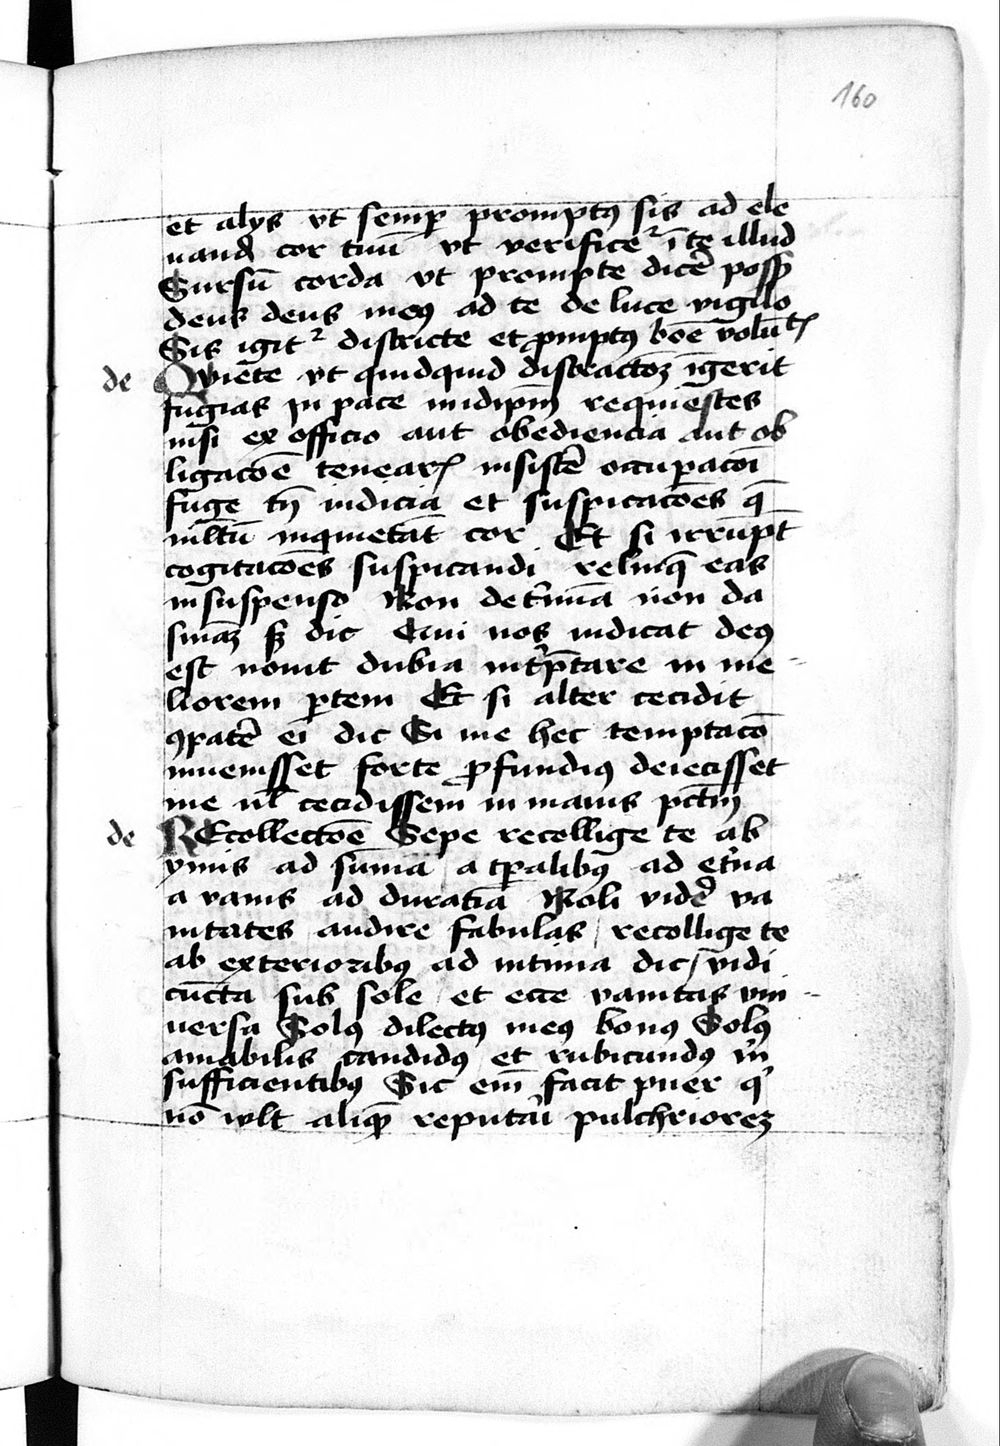 160
et alys vt semꝑ promptꝰ sis ad ele
uand̄ cor tuū vt verificeᷣ ī te illud
Sursū corda vt prompte dicē̓ possꝭ
deus deus meꝰ ad te de luce vigilo
Sis igitᷣ districte et ꝓmptꝰ boē volūtꝭ
de Quiete vt quidquid distractōeꝫ īgerit
fugias in pace in idip̄m requiesces
nisi ex officio aut obediencia aut ob
ligacōe tenearꝭ insistē̓ occupacōi
fuge tn̄ iudicia et suspicacōes q̄
mltū inquietāt cor Et si irrūpūt
cogitacōes suspicandi relinq̄ eas
in suspenso Non det̓minā non da
sn̄iaꝫ sꝫ dic Qui nos iudicat deꝰ
est nouit dubia int̓p̄tare in me-
liorem ꝑtem Et si alter cecidit
ꝯpatē̓ ei dic Si me hec temptacō
inuenisset forte ꝓfundiꝰ deiecisset
me ul̄ cecidissem in manꝰ pctm̄
de REcollectōe Sepe recollige te ab
ymis ad sūma a tꝑalibꝰ ad et̓na
a vanis ad duratīa Noli vidē̓ va
nitates audire fabulas / recollige te
ab exterioribꝰ ad intima dic / vidi
cūcta sub sole / et ecce vanitas vni-
uersa Solꝰ dilectꝰ meꝰ bonꝰ Solꝰ
amabilis candidꝰ et rubicundꝰ in
sufficientibꝰ Sic em̄ facit puer q̓
nō wlt aliqē̄ reputāi pulchrioreꝫ